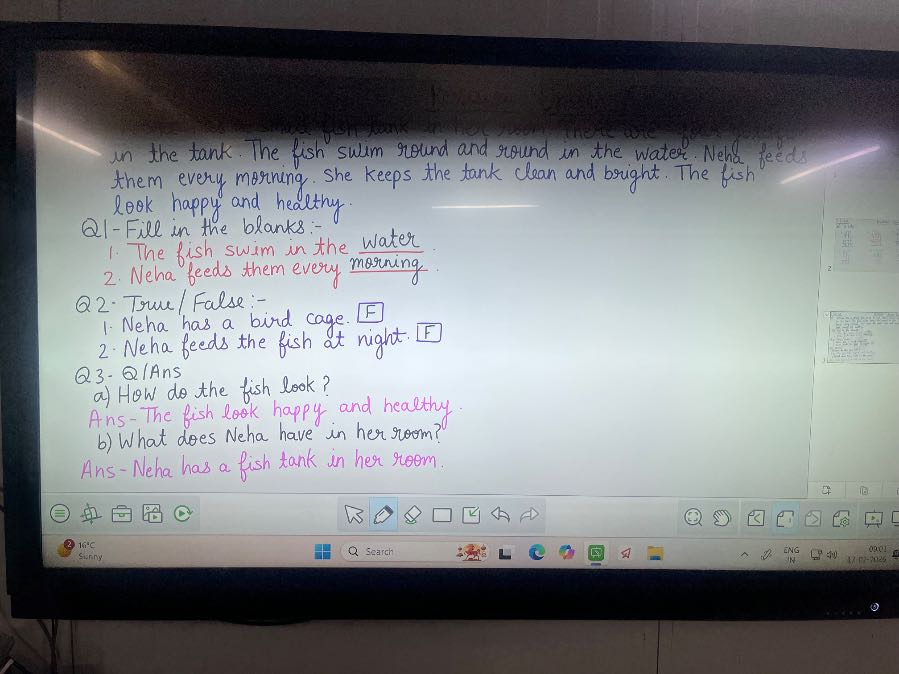 small fish tank in her room. There are four
in the tank. The fish swim round and round in the water. Neha feeds
them every morning. She keeps the tank clean and bright. The fish
look happy and healthy.
Q1- Fill in the blanks:-
1. The fish swim in the water.
2. Neha feeds them every morning.
Q2- True/False:-
1. Neha has a bird cage. F
2. Neha feeds the fish at night. F
Q3- Q/Ans
a) How do the fish look?
Ans- The fish look happy and healthy.
b) What does Neha have in her room?
Ans- Neha has a fish tank in her room.
2
2
16°C
Sunny
Search
ENG
IN
09:01